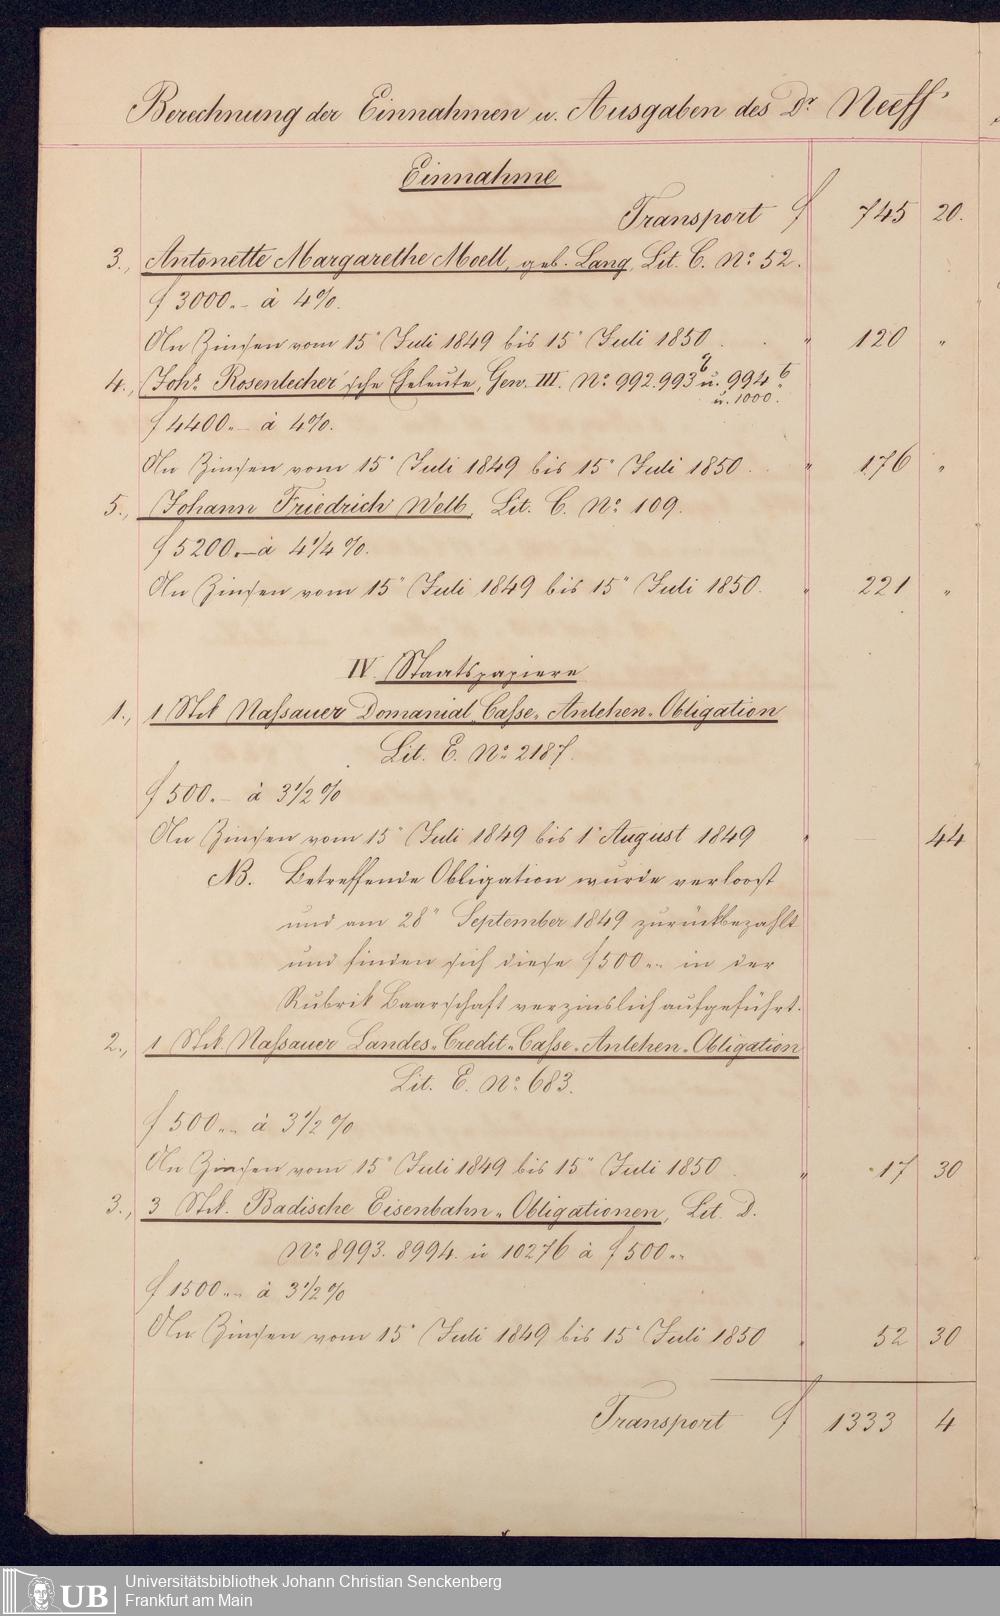 Berechnung der Einnahmen u. Ausgaben des Dr Neeff'
Einnahme
Transport f 745 20.
3., Antonette Margarethe Moell, geb. Lang, Lit. C. No 52.
f 3000.- à 4%.
An Zinsen vom 15" Juli 1849 bis 15" Juli 1850 . . " 120 "
4., Johs Rosenlecher'sche Eheleute, Gew. III. No 992. 993 a u. 994 b
u. 1000.
f 4400.- à 4%.
An Zinsen vom 15" Juli 1849 bis 15" Juli 1850 . " 176 "
5., Johann Friedrich Welb, Lit. C. No 109.
f 5200.- à 4 1/4 %.
An Zinsen vom 15" Juli 1849 bis 15" Juli 1850. " 221 "
IV. Staatspapiere
1., 1 Stck Naßauer Domanial-Casse-Anlehen-Obligation
Lit. E. No 2187.
f 500.- à 3 1/2 %
An Zinsen vom 15" Juli 1849 bis 1" August 1849 " 44
NB. Betreffende Obligation wurde verloost
und am 28" September 1849 zurückbezahlt
und finden sich diese f 500.- in der
Rubrik Baarschaft verzinslich aufgeführt.
2., 1 Stck. Naßauer Landes-Credit-Casse-Anlehen-Obligation
Lit. E. No 683.
f 500.- à 3 1/2 %
An Zinsen vom 15" Juli 1849 bis 15" Juli 1850 . " 17 30
3., 3 Stck. Badische Eisenbahn-Obligationen, Lit. D.
No 8993. 8994. u 10276 à f 500.-
f 1500.- à 3 1/2 %
An Zinsen vom 15" Juli 1849 bis 15" Juli 1850 " 52 30
Transport f 1333 4
UB
Universitätsbibliothek Johann Christian Senckenberg
Frankfurt am Main